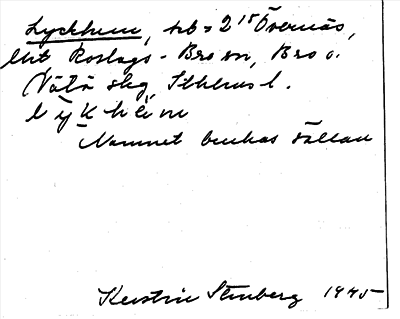 Lyckhem, hb = 2¹⁵ Övernäs,
lht Roslags-Bro sn, Bro o.
Vätö skg, Sthlms l.
lỳkhèm
Namnet brukas sällan
Kerstin Stenberg 1945